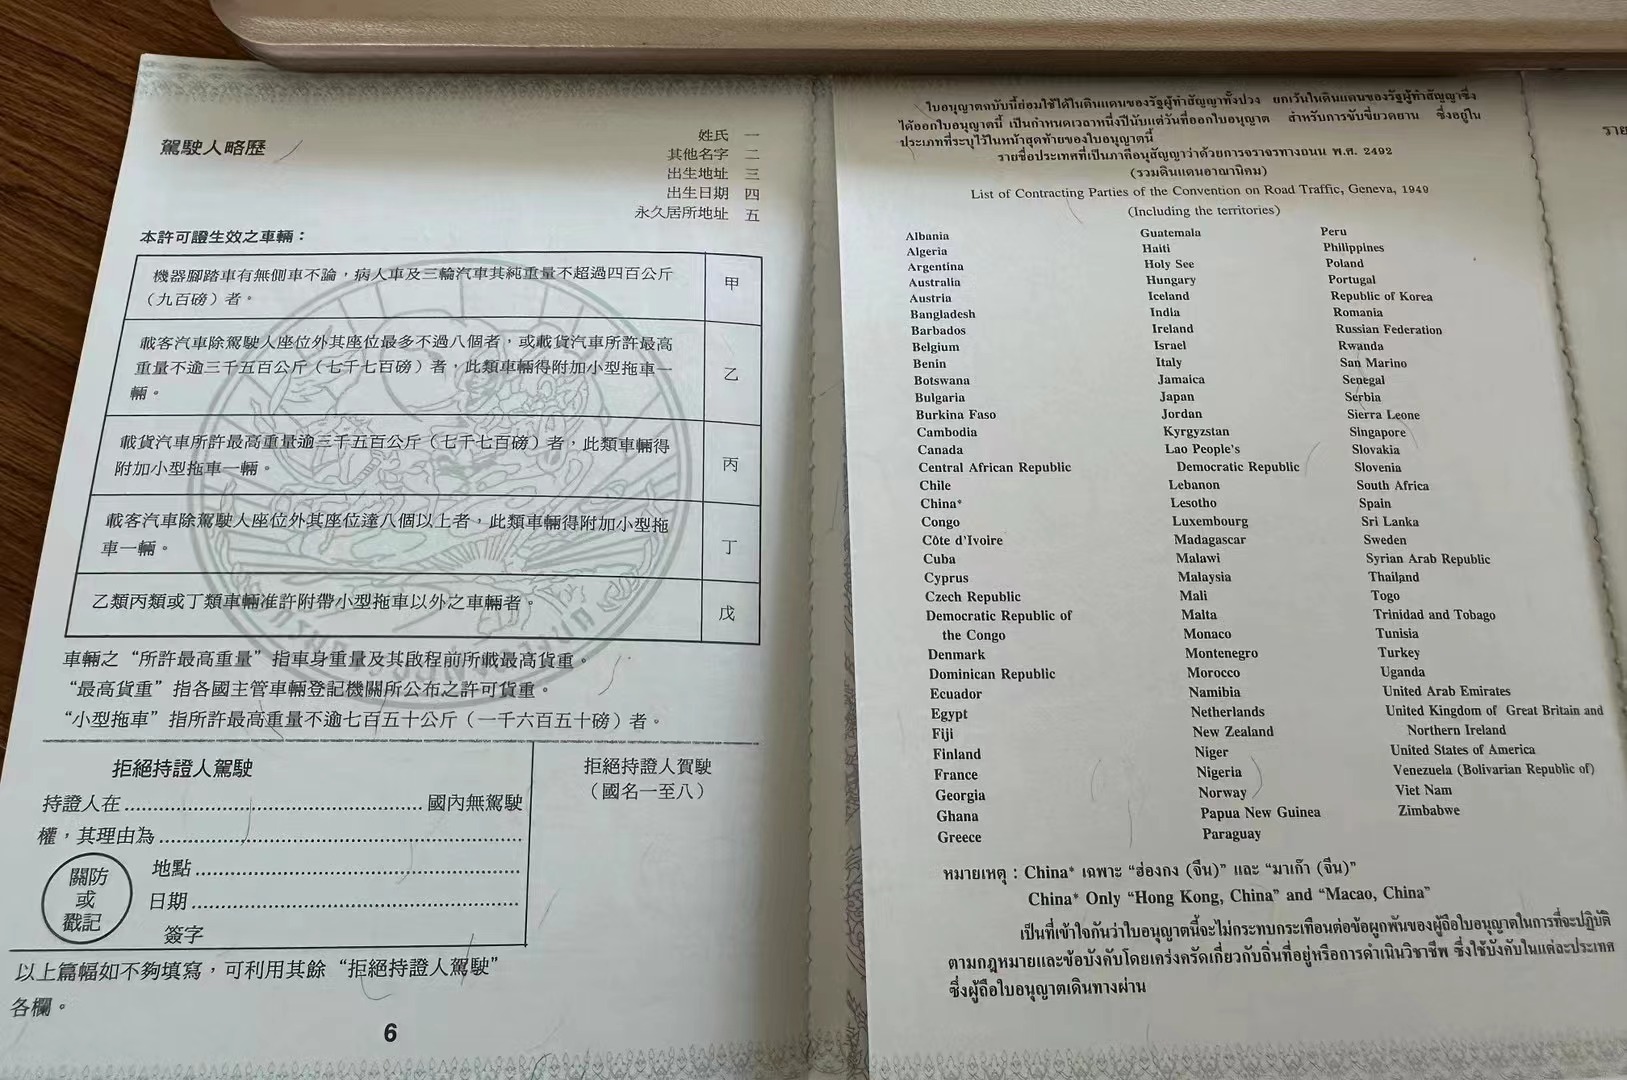 駕駛人略歷
姓氏 一
其他名字 二
出生地址 三
出生日期 四
永久居所地址 五
本許可證生效之車輛：
機器腳踏車有無側車不論，病人車及三輪汽車其純重量不超過四百公斤
（九百磅）者。
甲
載客汽車除駕駛人座位外其座位最多不過八個者，或載貨汽車所許最高
重量不逾三千五百公斤（七千七百磅）者，此類車輛得附加小型拖車一
輛。
乙
載貨汽車所許最高重量逾三千五百公斤（七千七百磅）者，此類車輛得
附加小型拖車一輛。
丙
載客汽車除駕駛人座位外其座位達八個以上者，此類車輛得附加小型拖
車一輛。
丁
乙類丙類或丁類車輛准許附帶小型拖車以外之車輛者。
戊
車輛之“所許最高重量”指車身重量及其啟程前所載最高貨重。
“最高貨重”指各國主管車輛登記機關所公布之許可貨重。
“小型拖車”指所許最高重量不逾七百五十公斤（一千六百五十磅）者。
拒絕持證人駕駛
持證人在 國內無駕駛
權，其理由為
關防
或
戳記
地點
日期
簽字
拒絕持證人賀駛
（國名一至八）
以上篇幅如不夠填寫，可利用其餘“拒絕持證人駕駛”
各欄。
6
ใบอนุญาตฉบับนี้ย่อมใช้ได้ในดินแดนของรัฐผู้ทำสัญญาทั้งปวง ยกเว้นในดินแดนของรัฐผู้ทำสัญญาซึ่ง
ได้ออกใบอนุญาตนี้ เป็นกำหนดเวลาหนึ่งปีนับแต่วันที่ออกใบอนุญาต สำหรับการขับขี่ยวดยาน ซึ่งอยู่ใน
ประเภทที่ระบุไว้ในหน้าสุดท้ายของใบอนุญาตนี้
รายชื่อประเทศที่เป็นภาคีอนุสัญญาว่าด้วยการจราจรทางถนน พ.ศ. 2492
(รวมดินแดนอาณานิคม)
List of Contracting Parties of the Convention on Road Traffic, Geneva, 1949
(Including the territories)
Albania
Algeria
Argentina
Australia
Austria
Bangladesh
Barbados
Belgium
Benin
Botswana
Bulgaria
Burkina Faso
Cambodia
Canada
Central African Republic
Chile
China*
Congo
Côte d’Ivoire
Cuba
Cyprus
Czech Republic
Democratic Republic of
the Congo
Denmark
Dominican Republic
Ecuador
Egypt
Fiji
Finland
France
Georgia
Ghana
Greece
Guatemala
Haiti
Holy See
Hungary
Iceland
India
Ireland
Israel
Italy
Jamaica
Japan
Jordan
Kyrgyzstan
Lao People's
Democratic Republic
Lebanon
Lesotho
Luxembourg
Madagascar
Malawi
Malaysia
Mali
Malta
Monaco
Montenegro
Morocco
Namibia
Netherlands
New Zealand
Niger
Nigeria
Norway
Papua New Guinea
Paraguay
Peru
Philippines
Poland
Portugal
Republic of Korea
Romania
Russian Federation
Rwanda
San Marino
Senegal
Serbia
Sierra Leone
Singapore
Slovakia
Slovenia
South Africa
Spain
Sri Lanka
Sweden
Syrian Arab Republic
Thailand
Togo
Trinidad and Tobago
Tunisia
Turkey
Uganda
United Arab Emirates
United Kingdom of Great Britain and
Northern Ireland
United States of America
Venezuela (Bolivarian Republic of)
Viet Nam
Zimbabwe
หมายเหตุ : China* เฉพาะ “ฮ่องกง (จีน)” และ “มาเก๊า (จีน)”
China* Only “Hong Kong, China” and “Macao, China”
เป็นที่เข้าใจกันว่าใบอนุญาตนี้จะไม่กระทบกระเทือนต่อข้อผูกพันของผู้ถือใบอนุญาตในการที่จะปฏิบัติ
ตามกฎหมายและข้อบังคับโดยเคร่งครัดเกี่ยวกับถิ่นที่อยู่หรือการดำเนินวิชาชีพ ซึ่งใช้บังคับในแต่ละประเทศ
ซึ่งผู้ถือใบอนุญาตเดินทางผ่าน
ราย